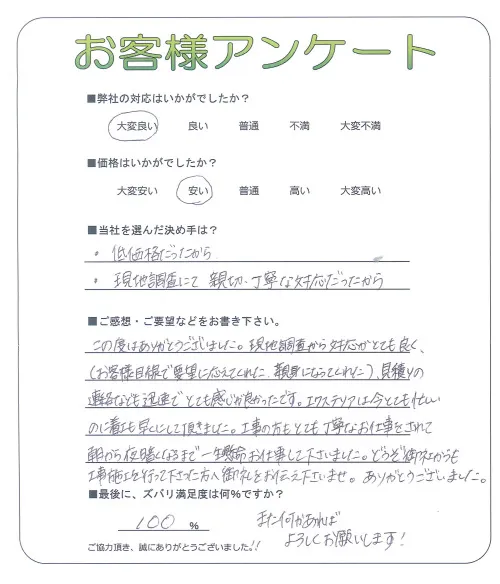 お客様アンケート
■弊社の対応はいかがでしたか？
大変良い 良い 普通 不満 大変不満
■価格はいかがでしたか？
大変安い 安い 普通 高い 大変高い
■当社を選んだ決め手は？
・低価格だったから
・現地調査にて 親切、丁寧な対応だったから
■ご感想・ご要望などをお書き下さい。
この度はありがとうございました。現地調査から対応がとても良く、
（お客様目線で要望に応えてくれた、親身になってくれた）、見積りの
連絡なども迅速でとても感じが良かったです。エクステリアは今とても忙しい
のに着工も早くにして頂きました。工事の方もとても丁寧なお仕事をされて
朝から夜暗くなるまで一生懸命お仕事して下さいました。どうぞ御社からも
工事施工を行って下さった方へ御礼をお伝え下さいませ。ありがとうございました。
■最後に、ズバリ満足度は何%ですか？
100 %
また何かあれば
よろしくお願いします！
ご協力頂き、誠にありがとうございました。!!